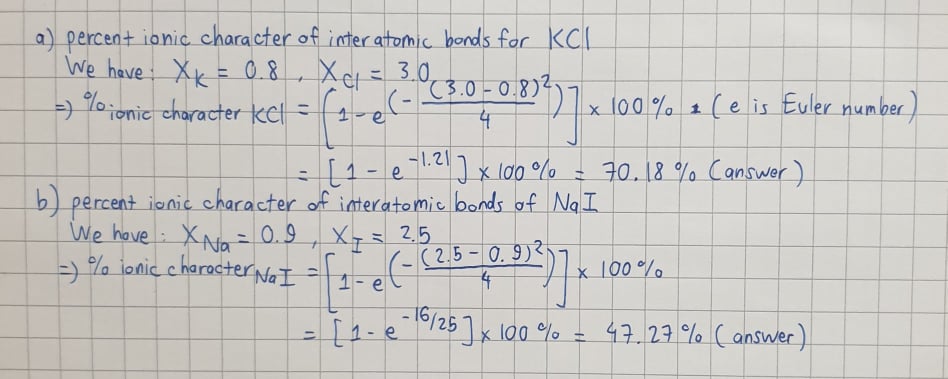 a) percent ionic character of interatomic bonds for KCl
We have: X_K = 0.8, X_Cl = 3.0
=) % ionic character KCl = [1 - e^(-(3.0 - 0.8)²/4)] × 100% (e is Euler number)
= [1 - e^-1.21] × 100% = 70.18% (answer)
b) percent ionic character of interatomic bonds of NaI
We have: X_Na = 0.9, X_I = 2.5
=) % ionic character NaI = [1 - e^(-(2.5 - 0.9)²/4)] × 100%
= [1 - e^-16/25] × 100% = 47.27% (answer)